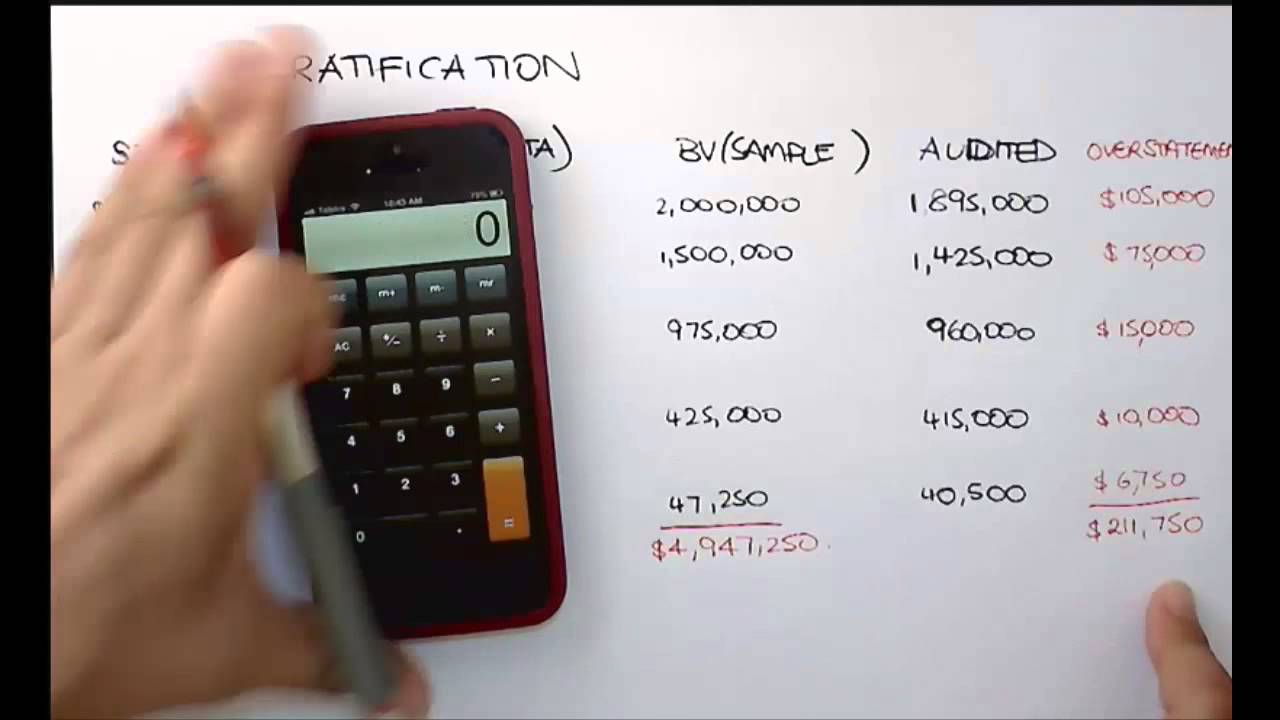 RATIFICATION
BV(SAMPLE) AUDITED OVERSTATEMEN
2,000,000 1,895,000 $105,000
1,500,000 1,425,000 $75,000
975,000 960,000 $15,000
425,000 415,000 $10,000
47,250 40,500 $6,750
$4,947,250. $211,750
10:43 AM
0
mc m+ m- mr
AC +/- ÷ ×
7 8 9 −
4 5 6 +
1 2 3 =
0 .